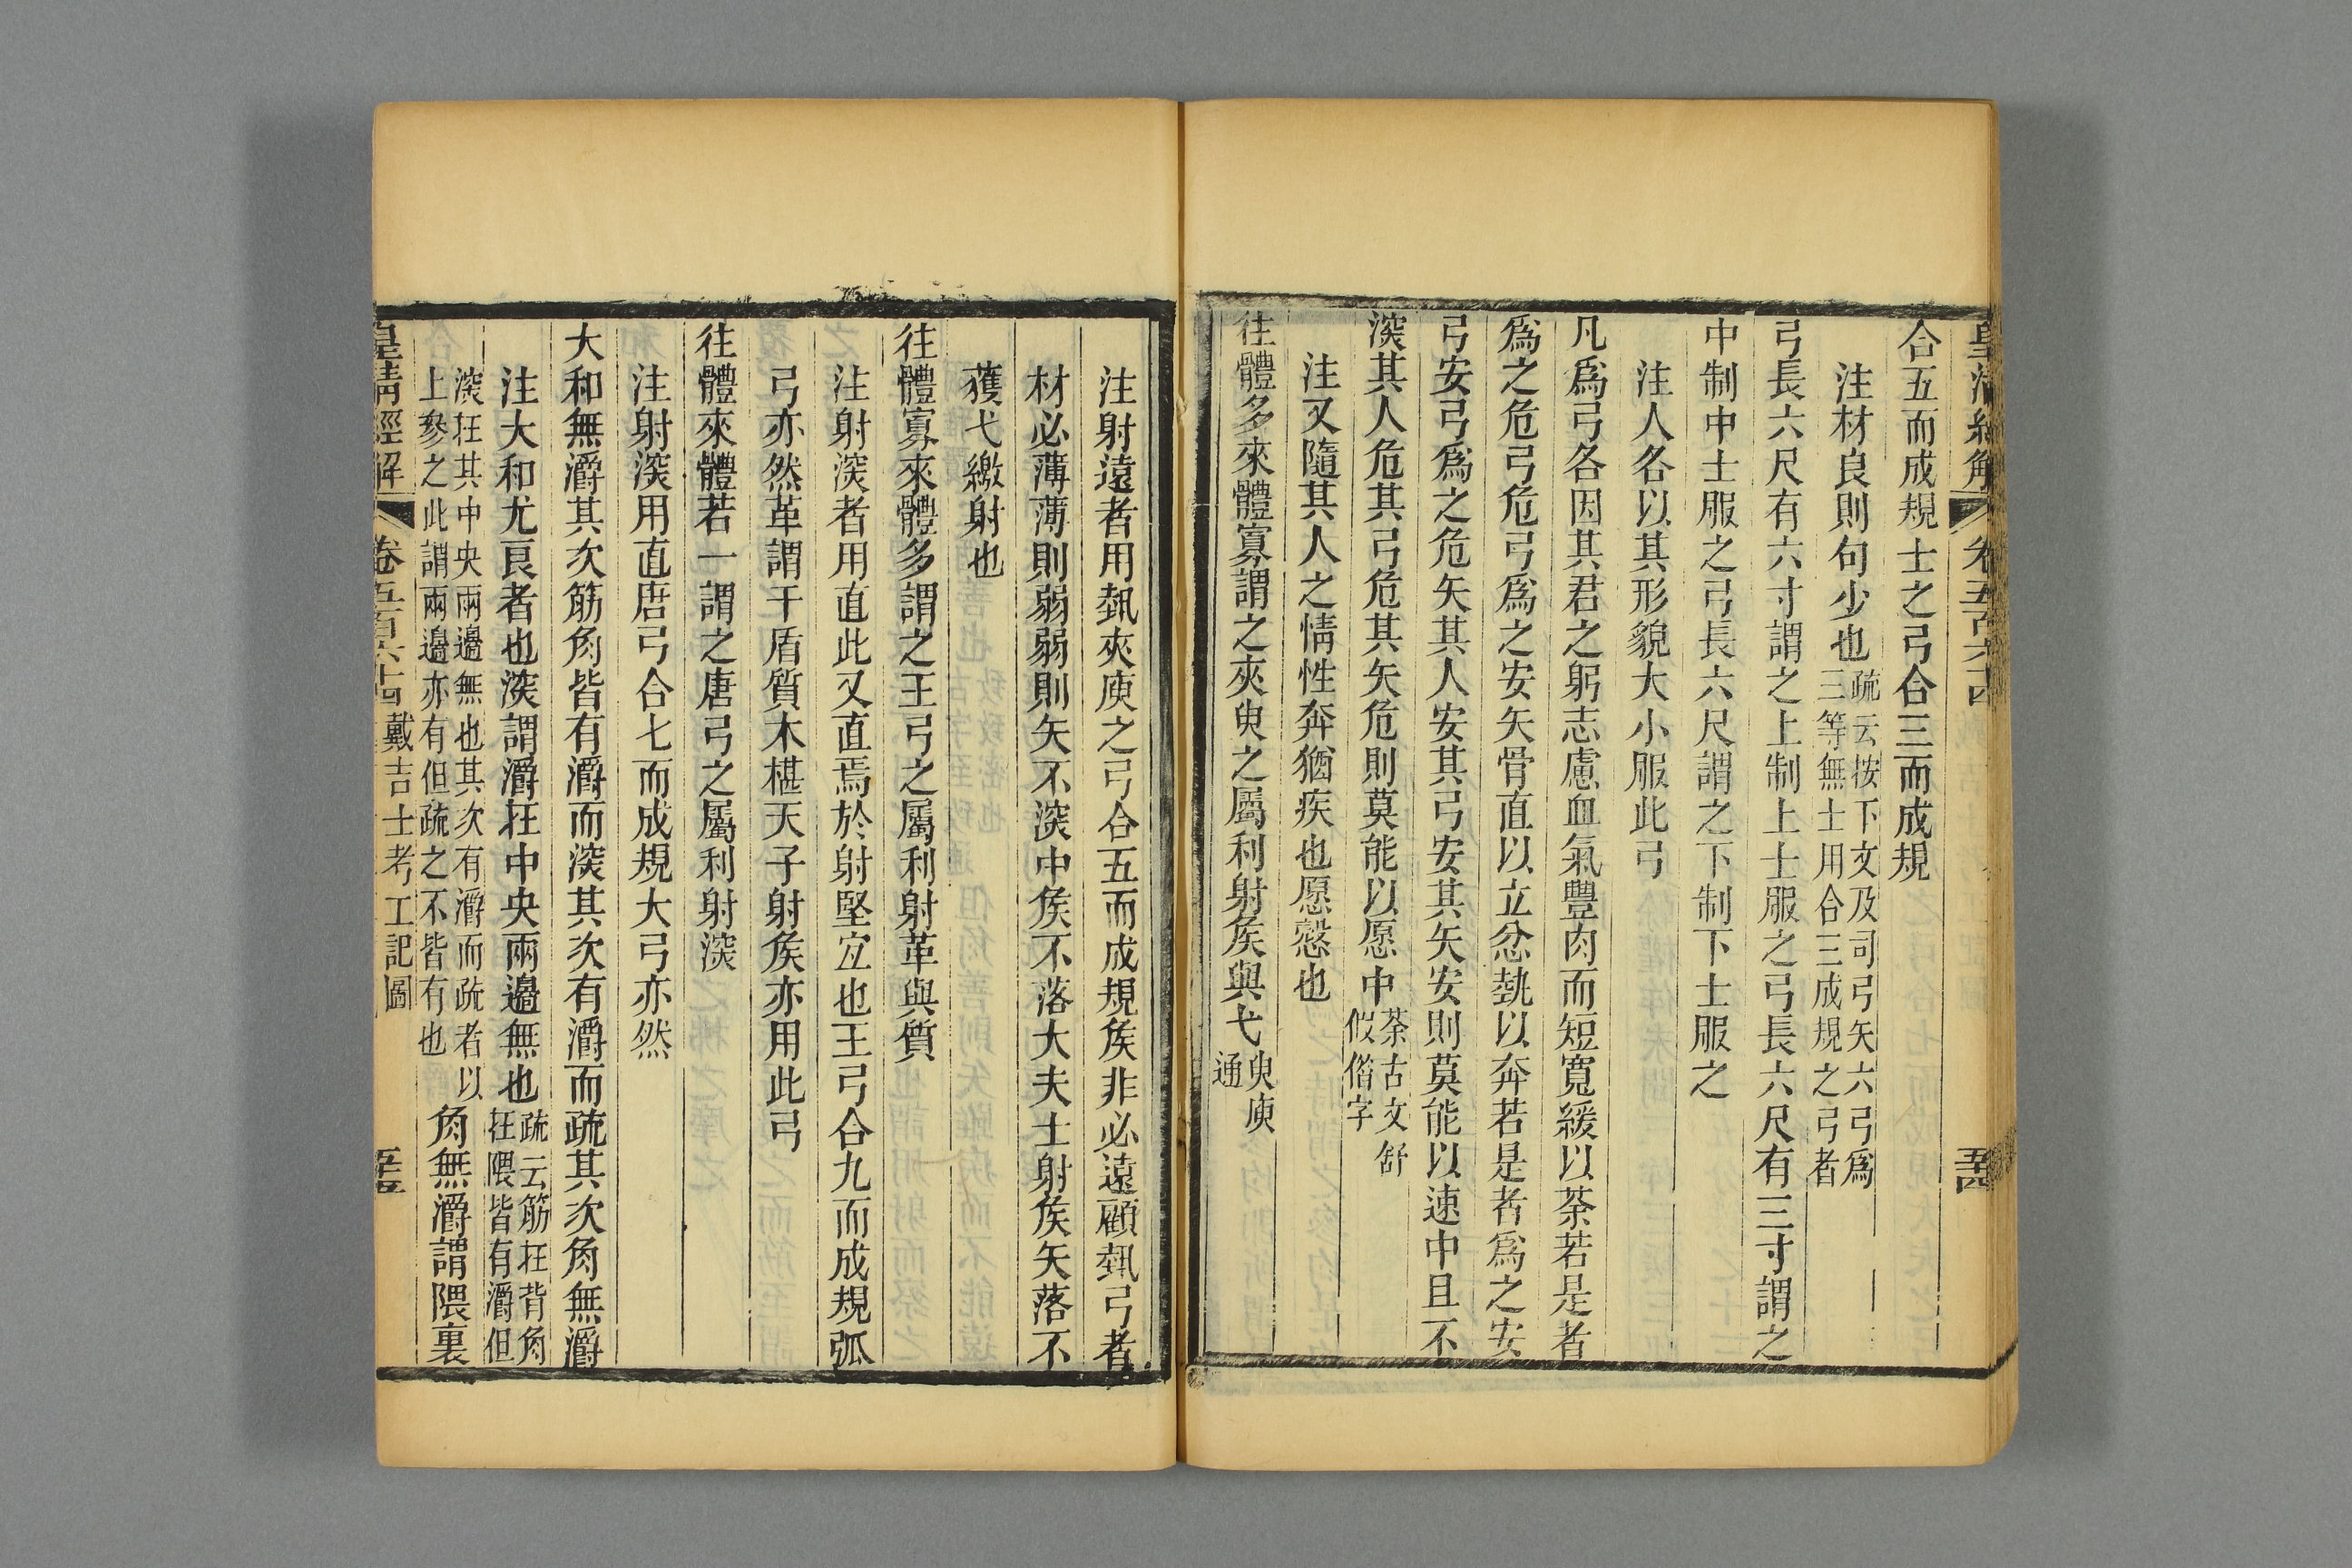 皇清經解 卷五百六十四 五十四
合五而成規士之弓合三而成規
注材良則句少也疏云按下文及司弓矢六弓爲三等無士用合三成規之弓者
弓長六尺有六寸謂之上制上士服之弓長六尺有三寸謂之
中制中士服之弓長六尺謂之下制下士服之
注人各以其形貌大小服此弓
凡爲弓各因其君之躬志慮血氣豐肉而短寬緩以荼若是者
爲之危弓危弓爲之安矢骨直以立忿埶以奔若是者爲之安
弓安弓爲之危矢其人安其弓安其矢安則莫能以速中且不
湥其人危其弓危其矢危則莫能以愿中荼古文舒假偕字
注又隨其人之情性奔猶疾也愿慤也
往體多來體寡謂之夾臾之屬利射矦與弋臾庾通
注射遠者用埶夾庾之弓合五而成規矦非必遠顧埶弓者
材必薄薄則弱弱則矢不湥中矦不落大夫士射矦矢落不
獲弋繳射也
往體寡來體多謂之王弓之屬利射革與質
注射湥者用直此又直焉於射堅宜也王弓合九而成規弧
弓亦然革謂干盾質木椹天子射矦亦用此弓
往體來體若一謂之唐弓之屬利射湥
注射湥用直唐弓合七而成規大弓亦然
大和無灂其次筋角皆有灂而湥其次有灂而疏其次角無灂
注大和尤良者也湥謂灂在中央兩邊無也疏云筋在背角在隈皆有灂但
湥在其中央兩邊無也其次有灂而疏者以上參之此謂兩邊亦有但疏之不皆有也角無灂謂隈裏
皇清經解 卷五百六十四 戴吉士考工記圖 五十五